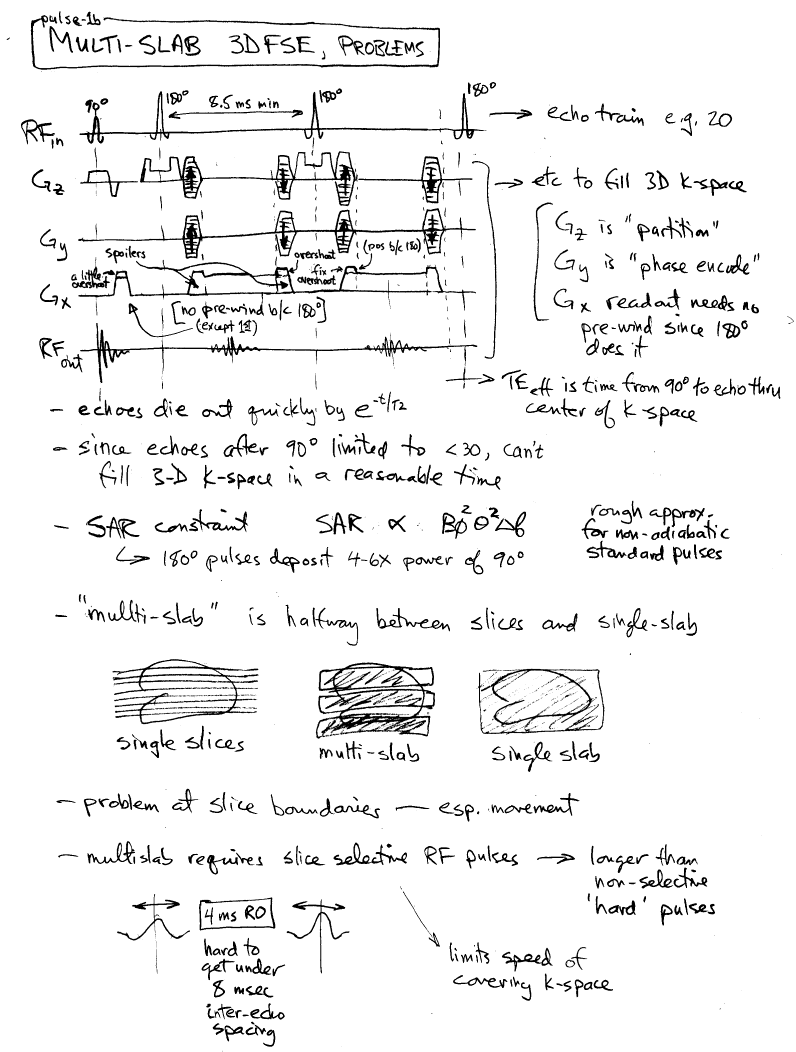 pulse-1b
MULTI-SLAB 3DFSE, PROBLEMS
90° 180° 8.5 ms min 180° 180°
RFin → echo train e.g. 20
Gz → etc to fill 3D k-space
Gz is "partition"
Gy
Gy is "phase encode"
spoilers overshoot (pos b/c 180)
a little overshoot fix overshoot
Gx
Gx readout needs no
pre-wind since 180°
does it
[no pre-wind b/c 180°]
(except 1st)
RFout
→ TEeff is time from 90° to echo thru
center of k-space
- echoes die out quickly by e^-t/T2
- since echoes after 90° limited to <30, can't
fill 3-D k-space in a reasonable time
- SAR constraint SAR ∝ Bφ²θ²Δf
rough approx.
for non-adiabatic
standard pulses
↳ 180° pulses deposit 4-6x power of 90°
- "multi-slab" is halfway between slices and single-slab
single slices multi-slab single slab
- problem at slice boundaries — esp. movement
- multislab requires slice selective RF pulses → longer than
non-selective
'hard' pulses
4 ms RO
hard to
get under
8 msec
inter-echo
spacing
limits speed of
covering k-space